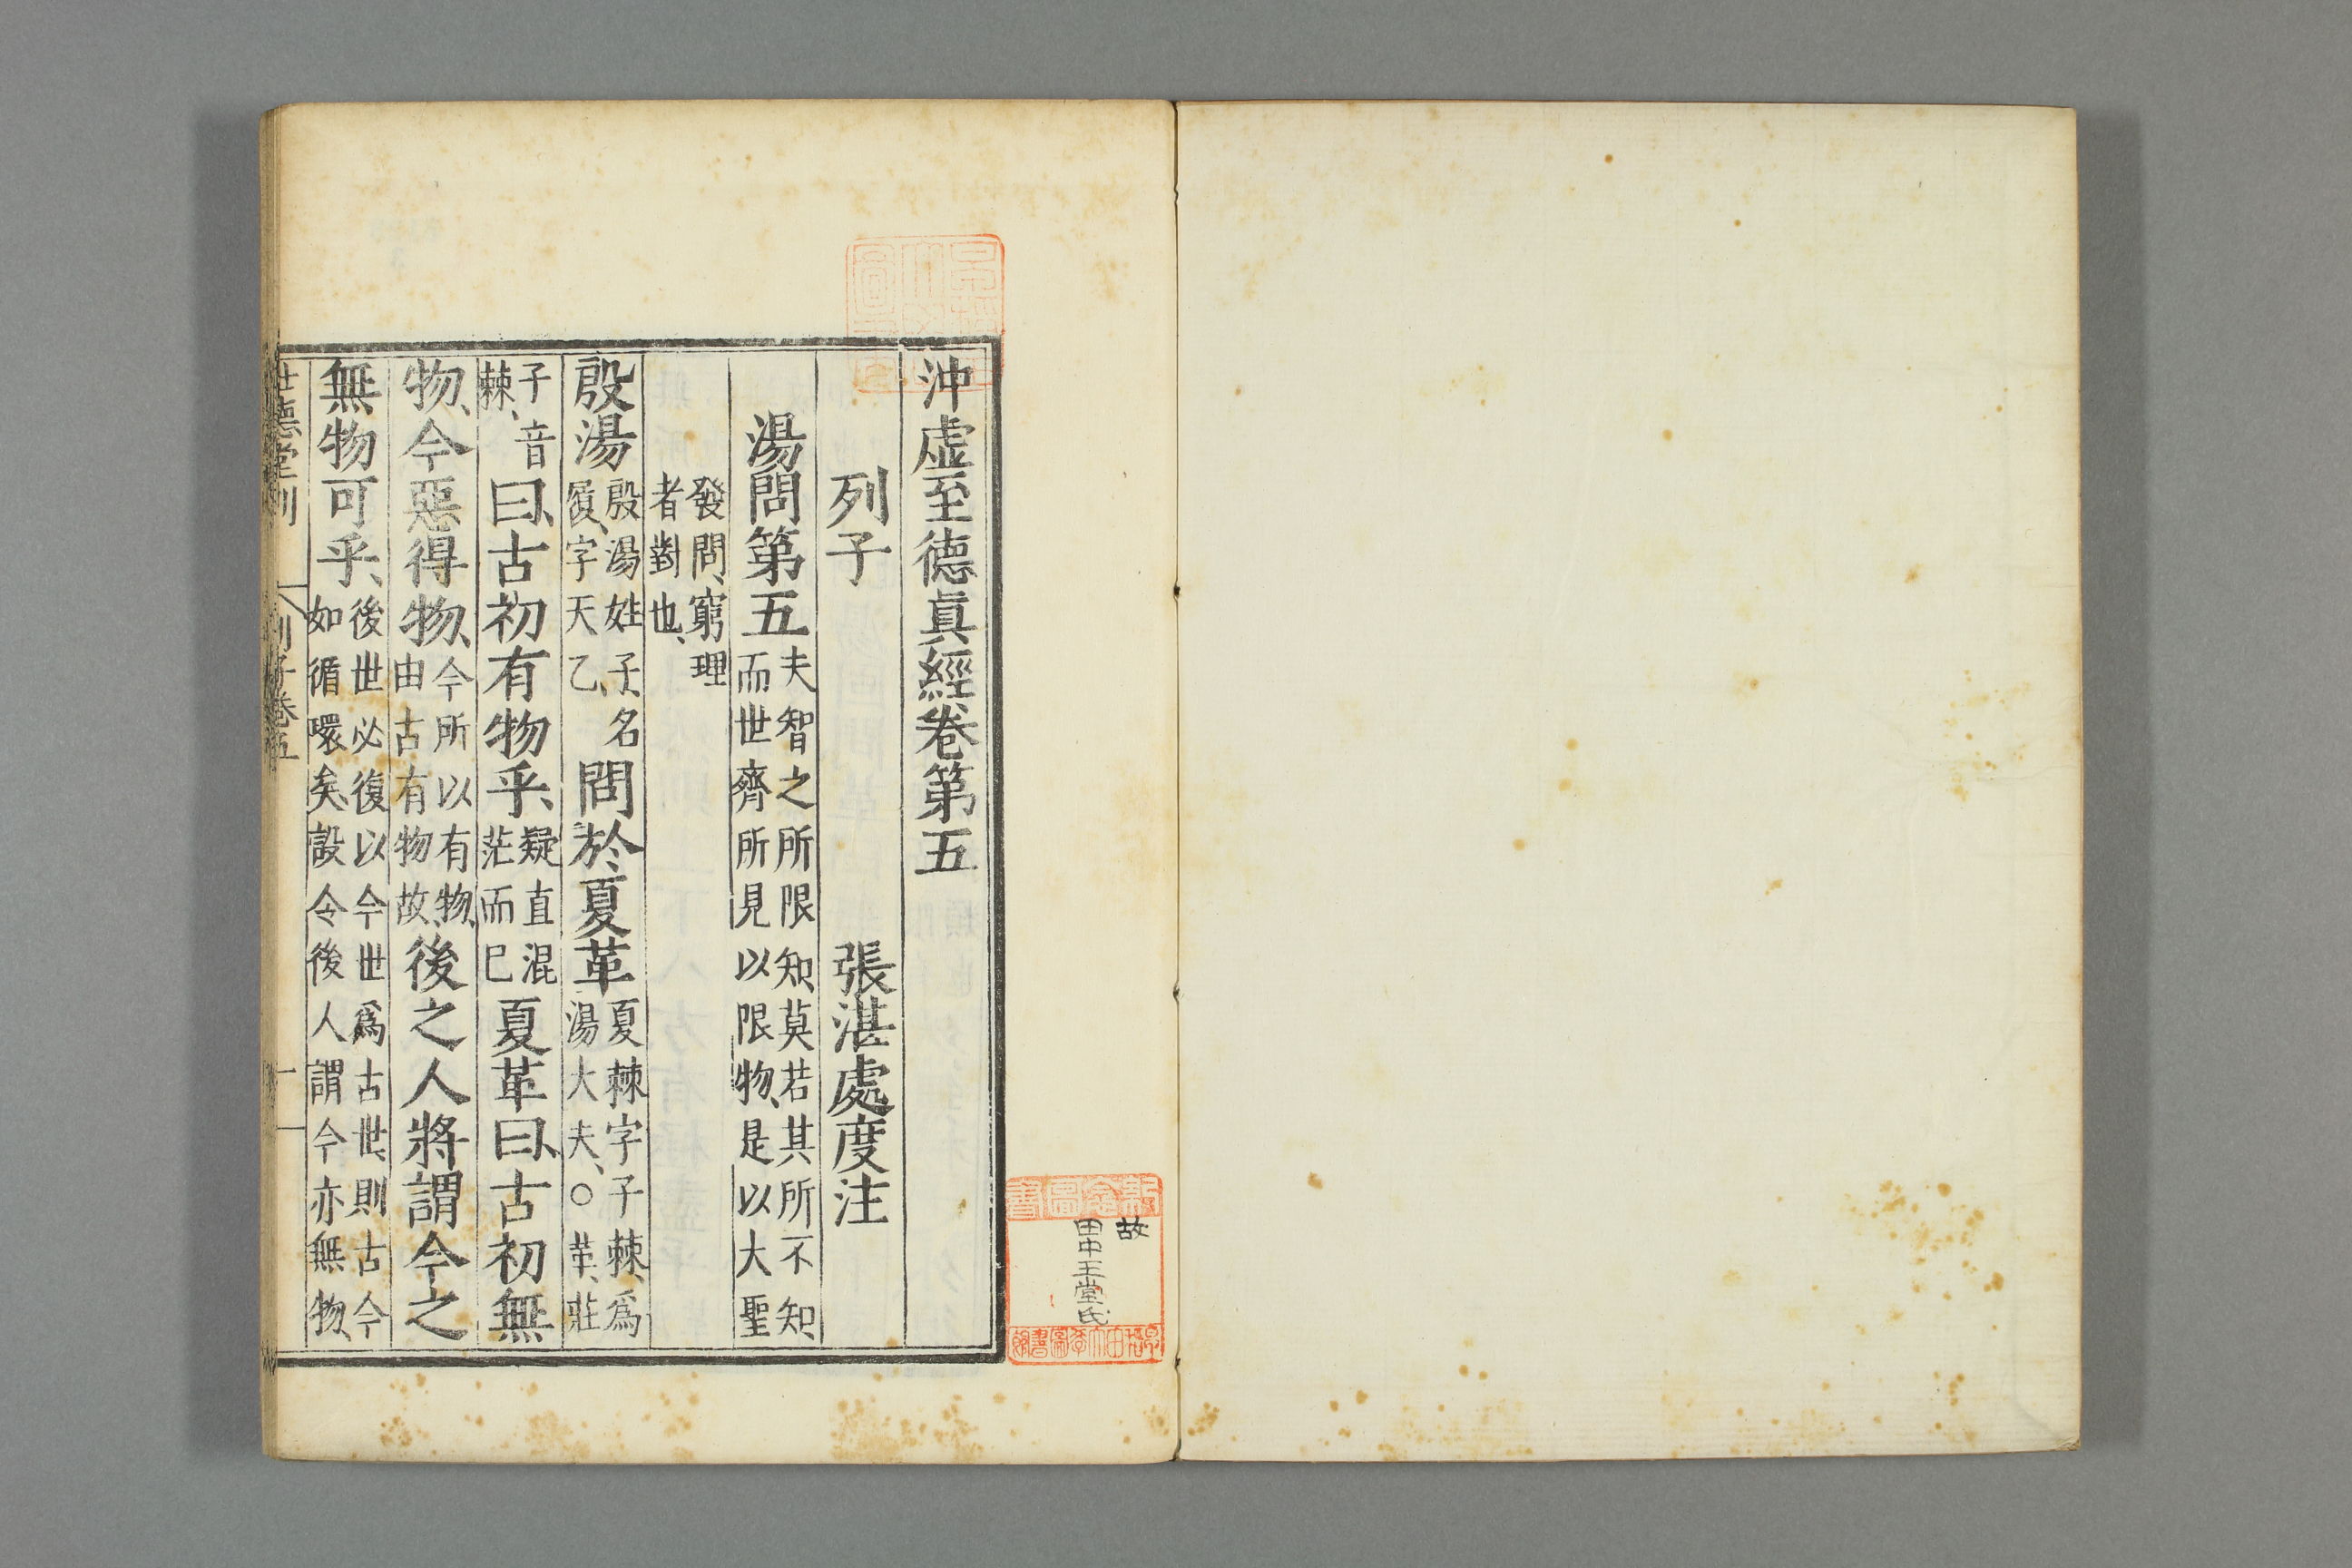 沖虚至德眞經卷第五
列子　張湛處度注
湯問第五 夫智之所限知、莫若其所不知、
而世齊所見以限物、是以大聖
發問、窮理
者對也、
殷湯 殷湯姓子、名
履、字天乙、 問於夏革 夏棘字子棘、爲
湯大夫、○革、莊
子音
棘、 曰、古初有物乎、 疑直混
茫而已 夏革曰、古初無
物、今惡得物、 今所以有物、
由古有物故、 後之人將謂今之
無物可乎、 後世必復以今世爲古世、則古今
如循環矣、設令後人謂今亦無物、
世德堂刊　列子卷五　一
故
田中王堂氏